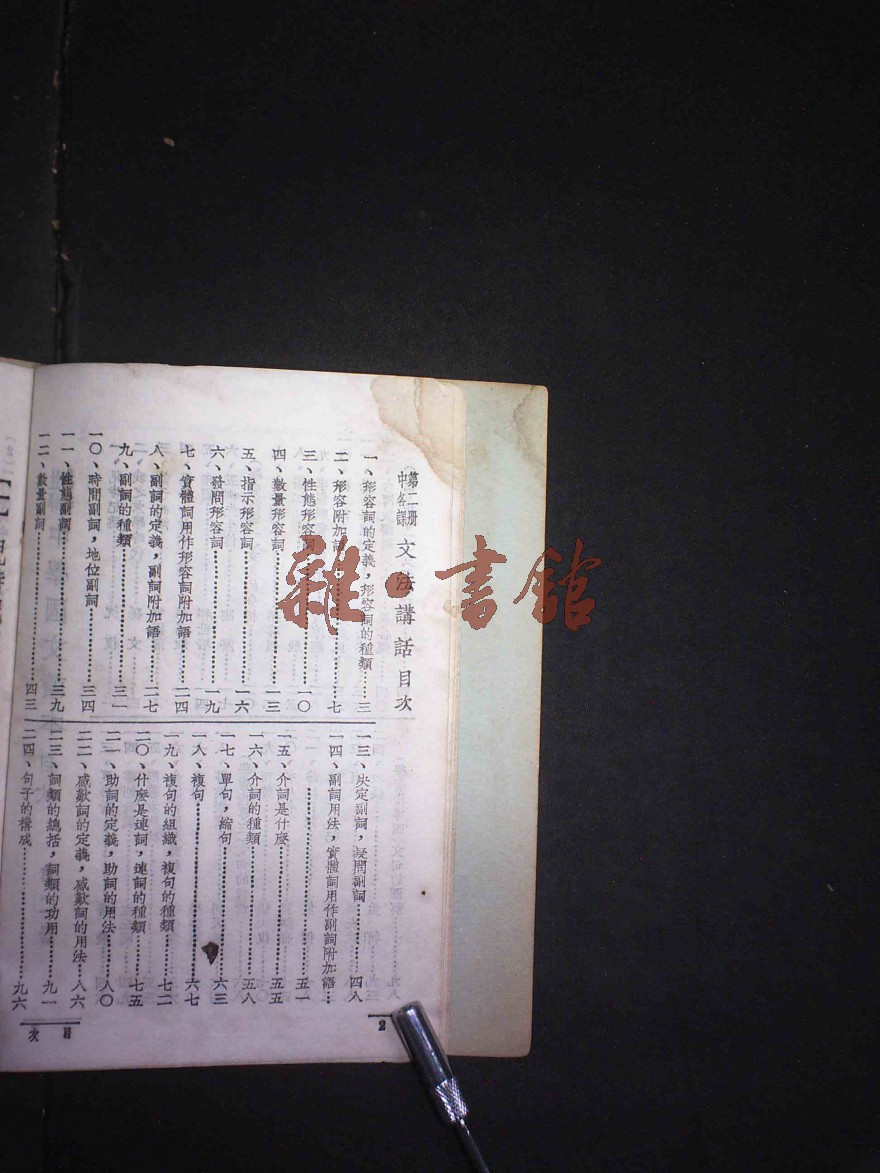 第二册
中各課
文法講話目次
一、形容詞的定義，形容詞的種類……三
二、形容附加語……七
三、性態形容詞……一〇
四、數量形容詞……一三
五、指示形容詞……一六
六、發問形容詞……一九
七、實體詞用作形容詞附加語……二四
八、副詞的定義，副詞附加語……二七
九、副詞的種類……三一
一〇、時間副詞，地位副詞……三四
一一、性態副詞……三九
一二、數量副詞……四三
一三、決定副詞，疑問副詞……四八
一四、副詞用法，實體詞用作副詞附加語…
……五一
一五、介詞是什麼……五五
一六、介詞的種類……五八
一七、單句，縮句……六三
一八、複句……六七
一九、複句的組織，複句的種類……七二
二〇、什麼是連詞，連詞的種類……七五
二一、助詞的定義，助詞的用法……八〇
二二、感歎詞的定義，感歎詞的用法……八六
二三、詞類的總括，詞類的功用……九一
二四、句子的構成……九六
目次
2
雜·書館